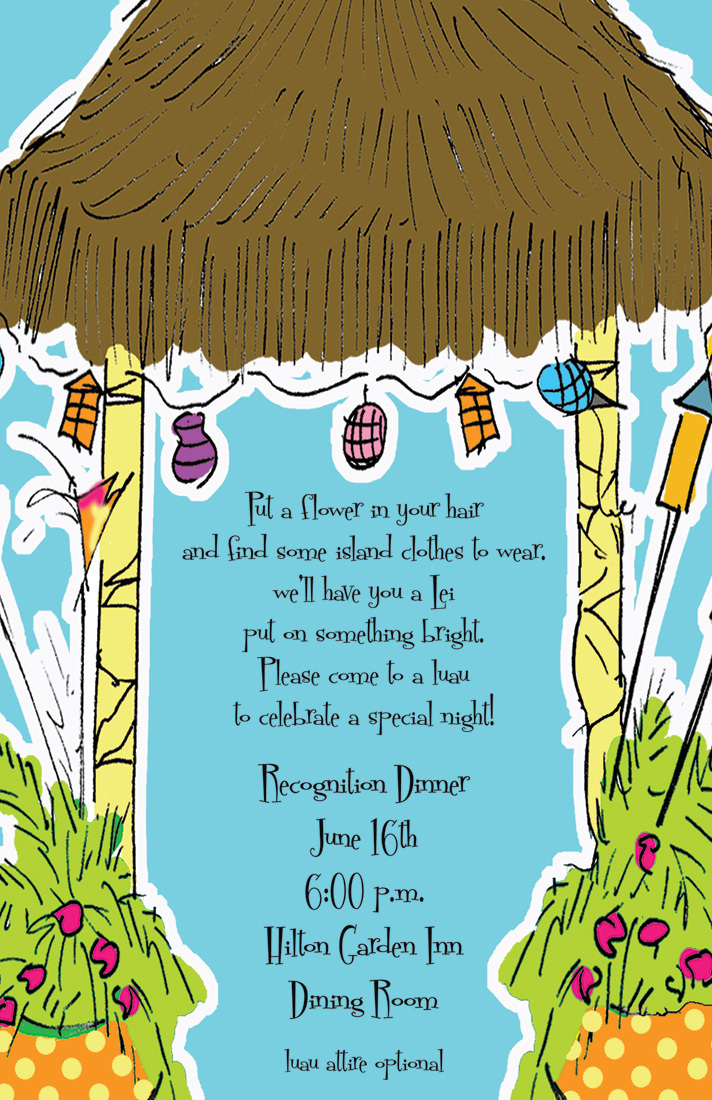 Put a flower in your hair
and find some island clothes to wear.
we'll have you a Lei
put on something bright.
Please come to a luau
to celebrate a special night!
Recognition Dinner
June 16th
6:00 p.m.
Hilton Garden Inn
Dining Room
luau attire optional